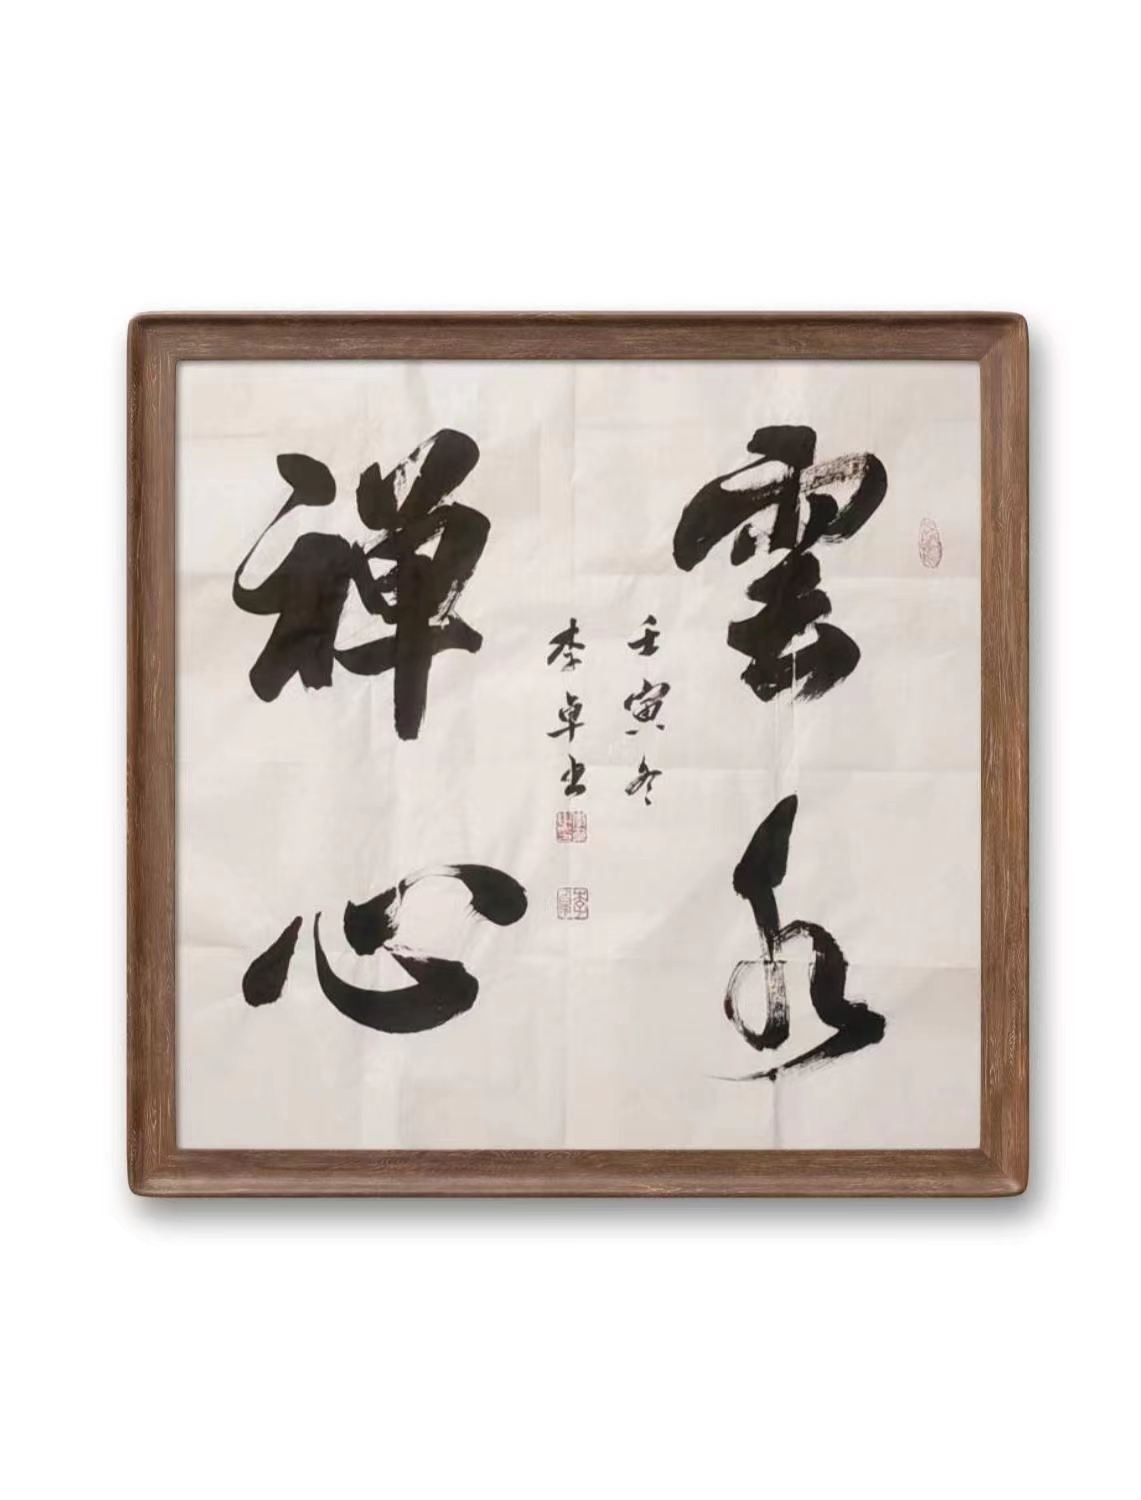 雲水
禪心
壬寅冬
李卓书